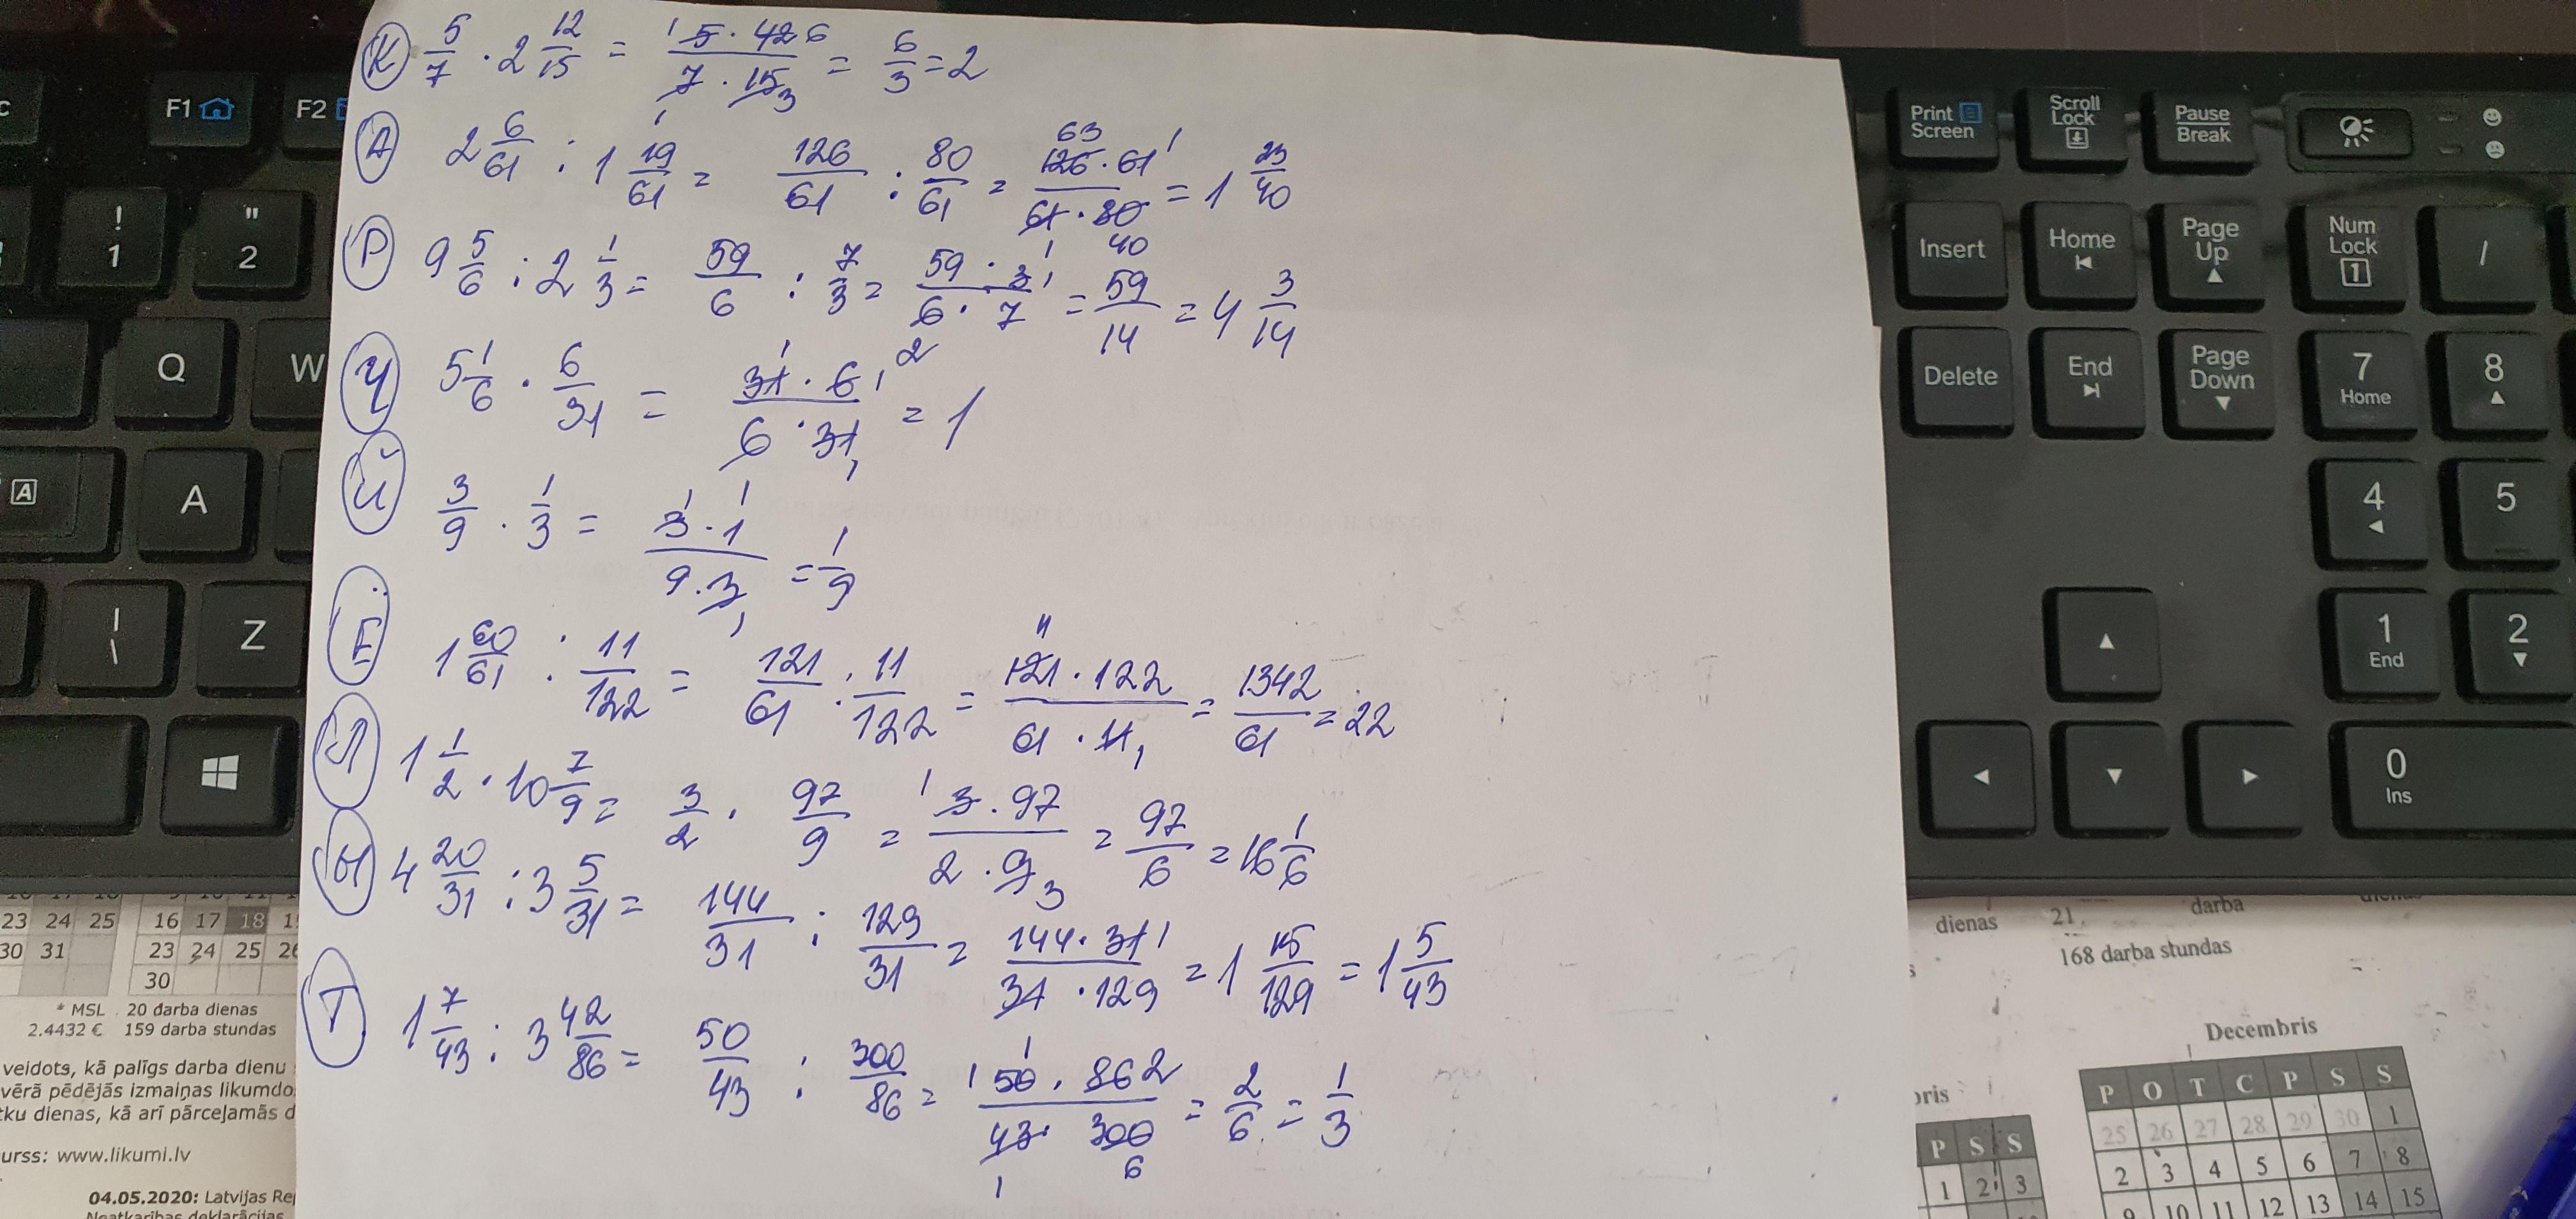 К 5/7 · 2 12/15 = 5 · 42 6 / 7 · 15 3 = 6/3 = 2
А 2 6/61 : 1 19/61 = 126/61 : 80/61 = 63 126 · 61 1 / 61 · 80 40 = 1 23/40
Р 9 5/6 : 2 1/3 = 59/6 : 7/3 = 59 · 3 1 / 6 · 7 2 = 59/14 = 4 3/14
Ч 5 1/6 · 6/31 = 1 31 · 6 1 / 6 · 31 1 = 1
Й 3/9 · 1/3 = 1 3 · 1 / 9 · 3 1 = 1/9
Ё 1 60/61 : 11/122 = 121/61 : 11/122 = 11 121 · 122 / 61 · 11 1 = 1342/61 = 22
Л 1 1/2 · 10 7/9 = 3/2 · 97/9 = 1 3 · 97 / 2 · 9 3 = 97/6 = 16 1/6
Ы 4 20/31 : 3 5/31 = 144/31 : 129/31 = 144 · 31 1 / 31 · 129 = 1 15/129 = 1 5/43
Т 1 7/43 : 3 42/86 = 50/43 : 300/86 = 1 50 · 86 2 / 43 1 · 300 6 = 2/6 = 1/3
F1
F2
! 1
" 2
Q
W
A
A
| \
Z
Print Screen
Scroll Lock
Pause Break
Insert
Home
Page Up
Num Lock 1
/
Delete
End
Page Down
7 Home
8
4
5
1 End
2
0 Ins
23 24 25
30 31
16 17 18
23 24 25
30
* MSL 20 darba dienas
2.4432 € 159 darba stundas
veidots, kā palīgs darba dienu
vērā pēdējās izmaiņas likumdo
dienas, kā arī pārceļamās d
www.likumi.lv
04.05.2020: Latvijas
dienas 21 darba
168 darba stundas
Decembris
P O T C P S S
25 26 27 28 29 30 1
2 3 4 5 6 7 8
9 10 11 12 13 14 15
P S S
1 2 3